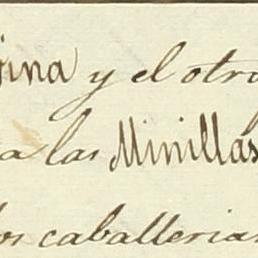 ina y el otro
a las Minillas
los caballerias